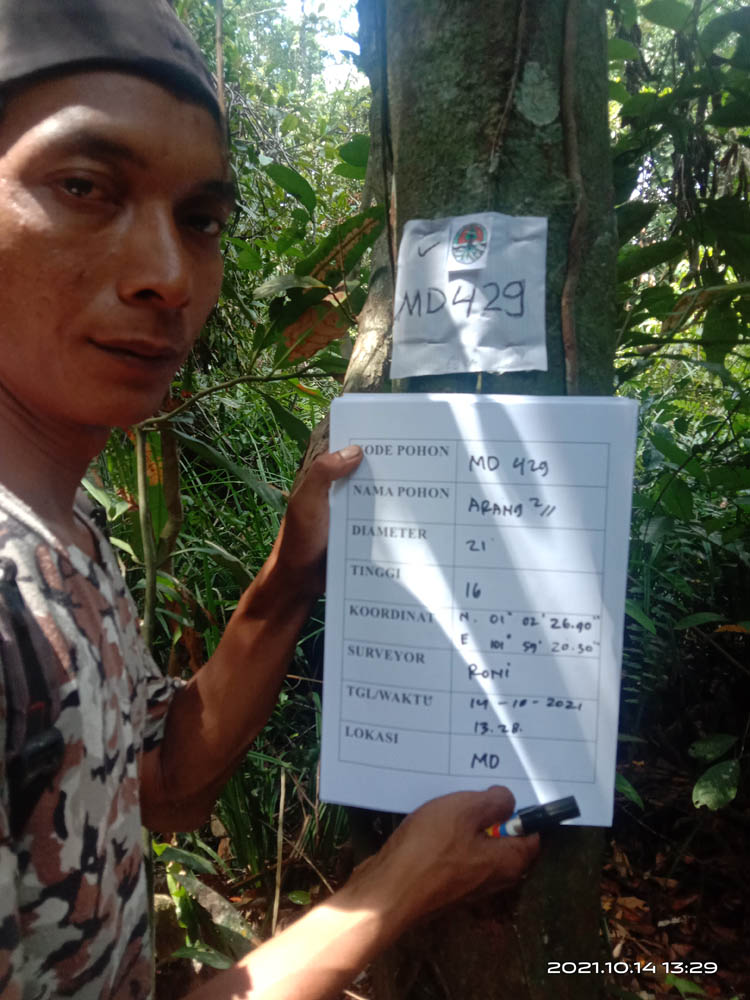 ✓
MD429
KODE POHON MD 429
NAMA POHON ARANG 2//
DIAMETER 21
TINGGI 16
KOORDINAT N. 01° 02' 26.90"
E 101° 59' 20.30"
SURVEYOR ROMI
TGL/WAKTU 14-10-2021
13.28.
LOKASI MD
2021.10.14 13:29